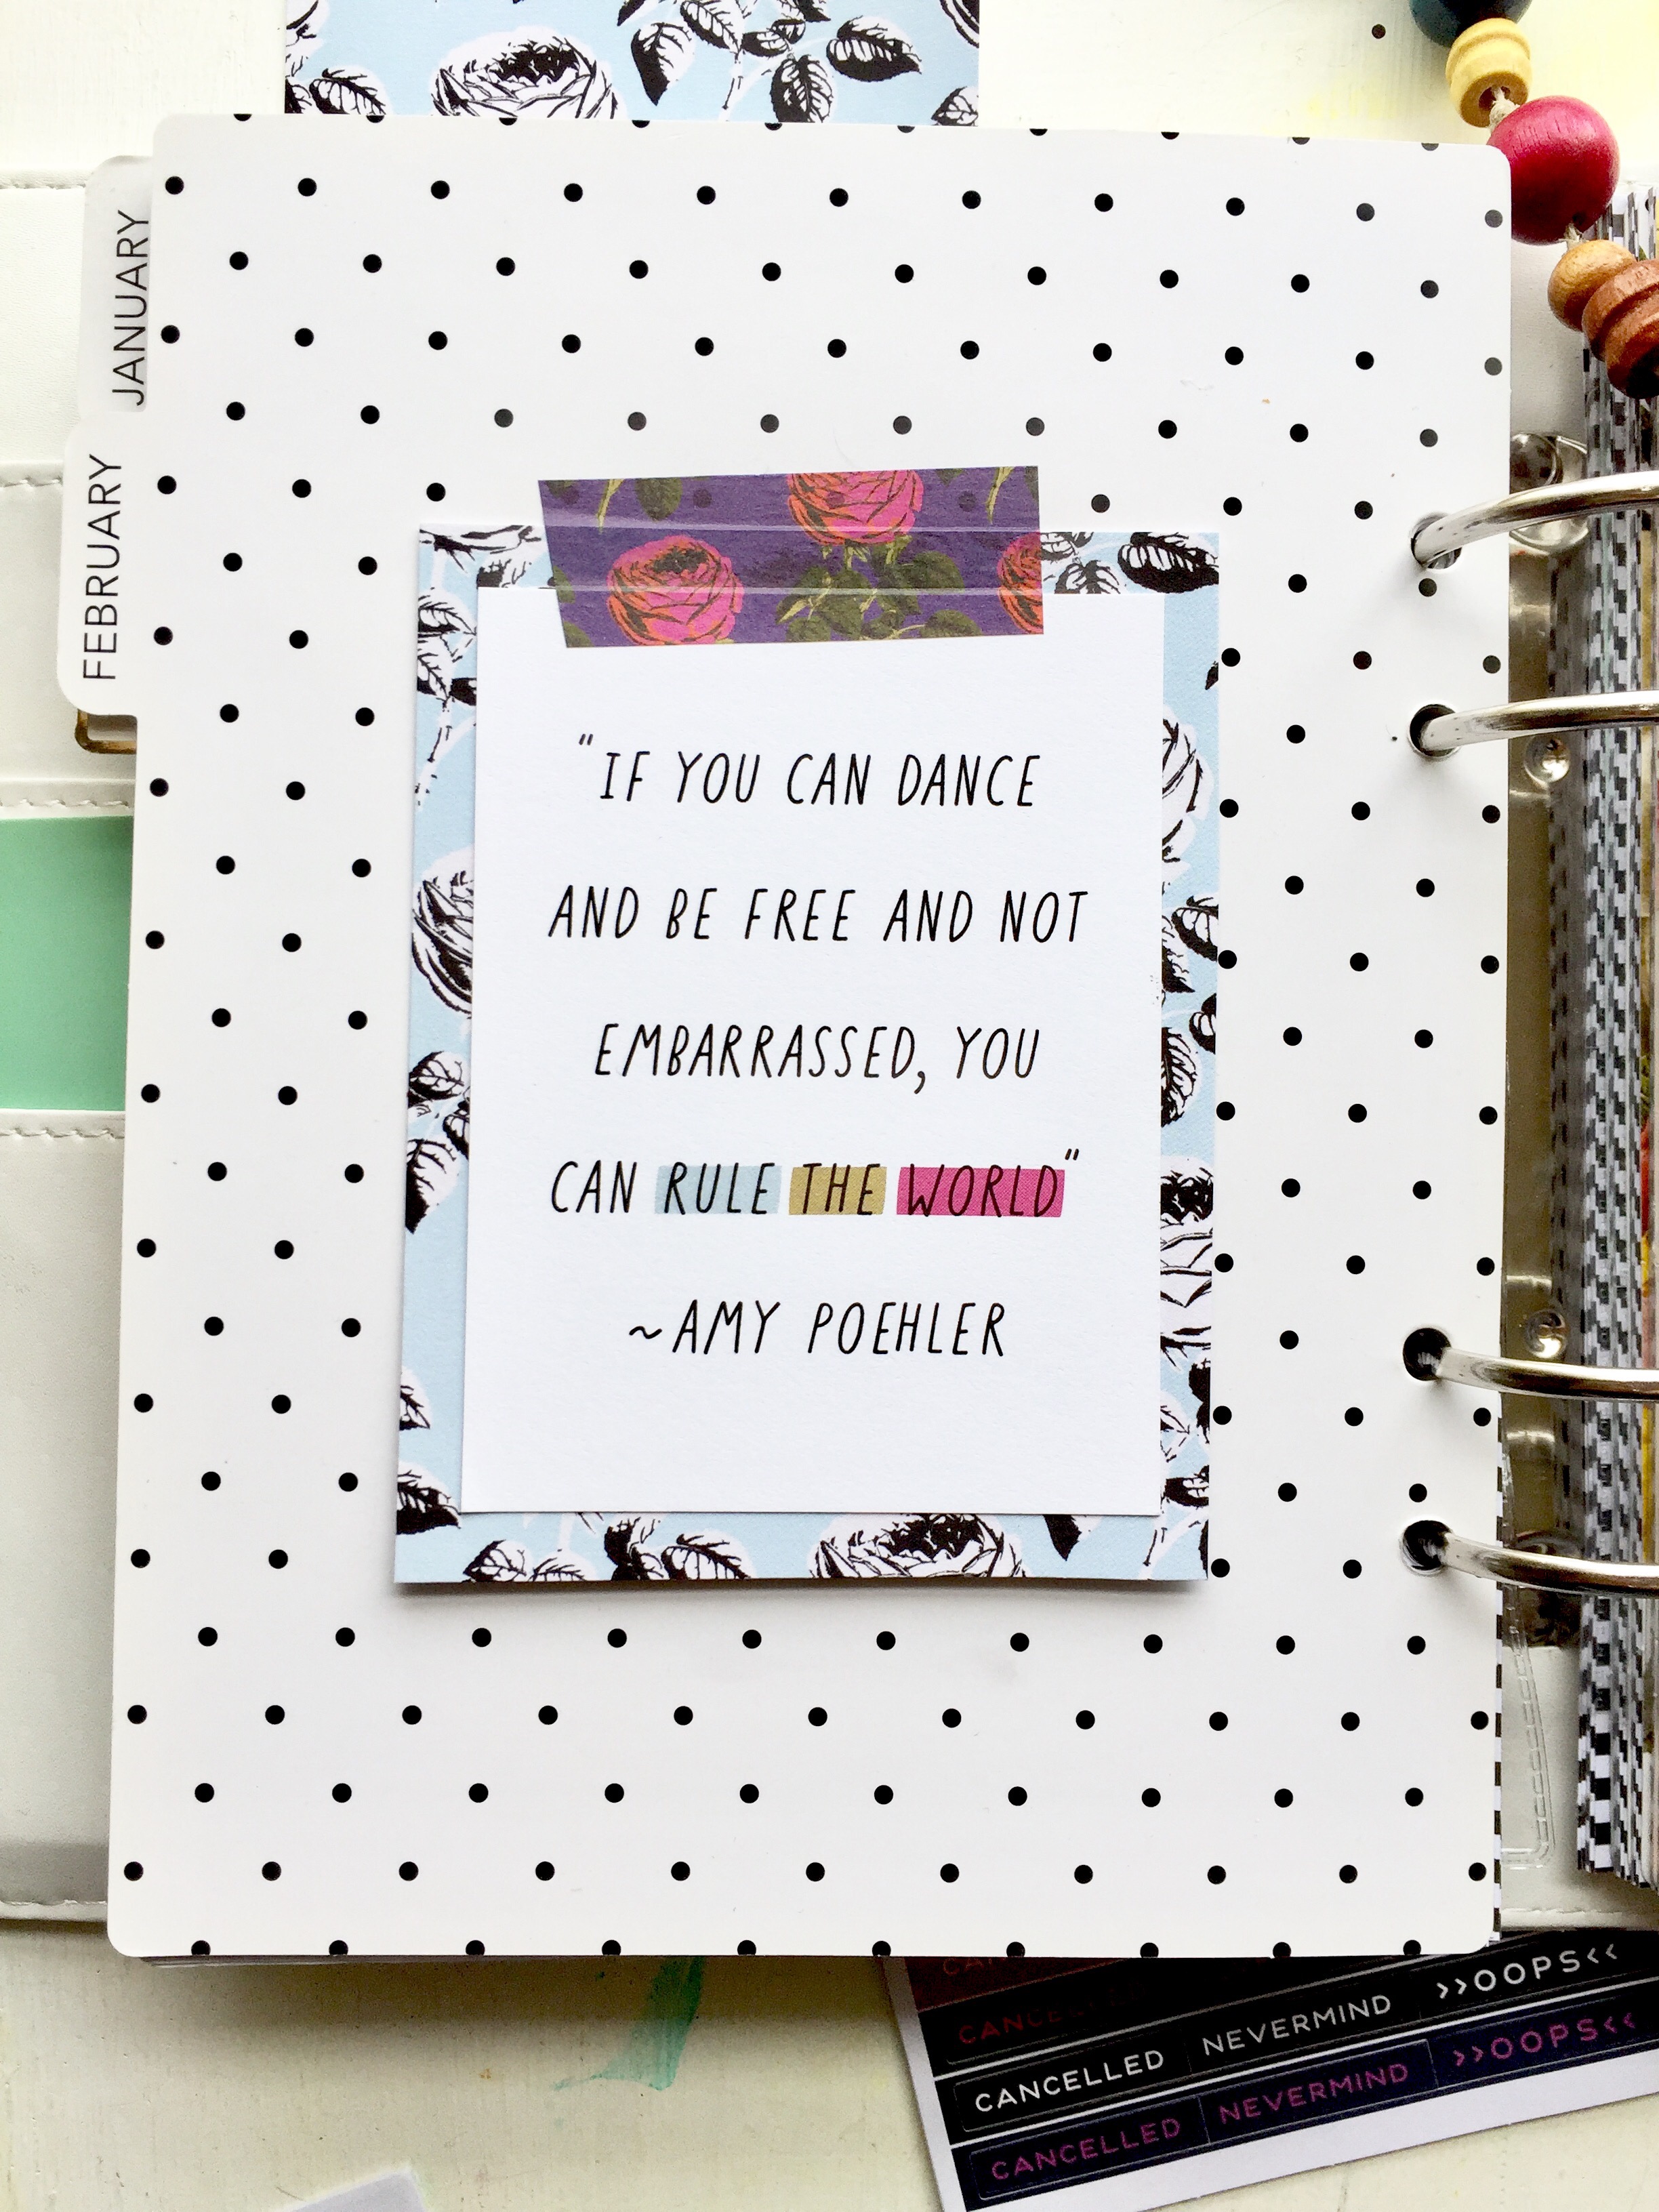 JANUARY
FEBRUARY
"IF YOU CAN DANCE
AND BE FREE AND NOT
EMBARRASSED, YOU
CAN RULE THE WORLD"
~AMY POEHLER
CANCELLED NEVERMIND >>OOPS<<
CANCELLED NEVERMIND >>OOPS<<